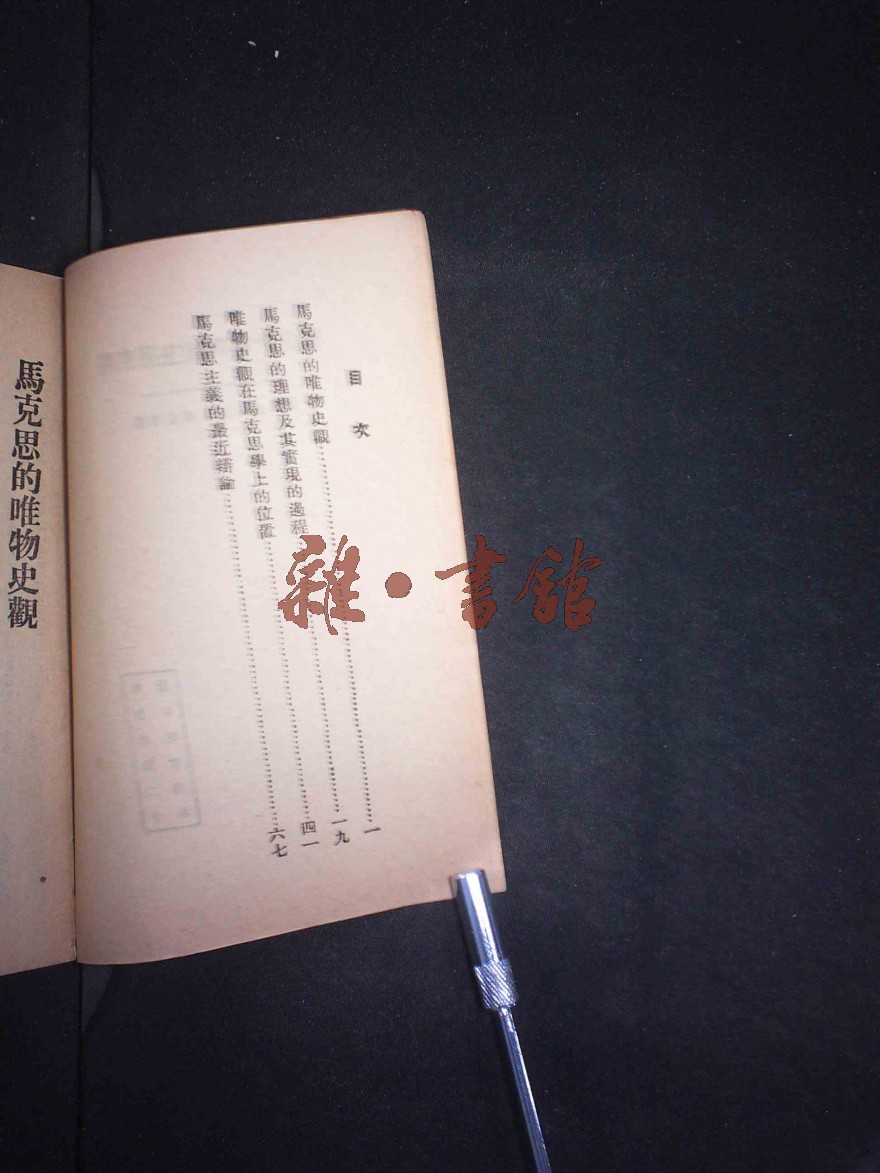 目次
馬克思的唯物史觀……一
馬克思的理想及其實現的過程……一九
唯物史觀在馬克思學上的位置……四一
馬克思主義的最近辯論……六七
馬克思的唯物史觀
雜·書館